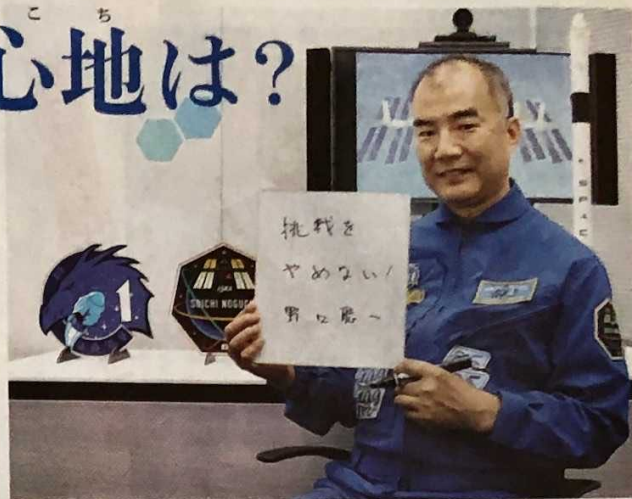 こ　こ　ち
心地は?
挑戦を
やめない!
野口聡一
1
SOICHI NOGUCHI